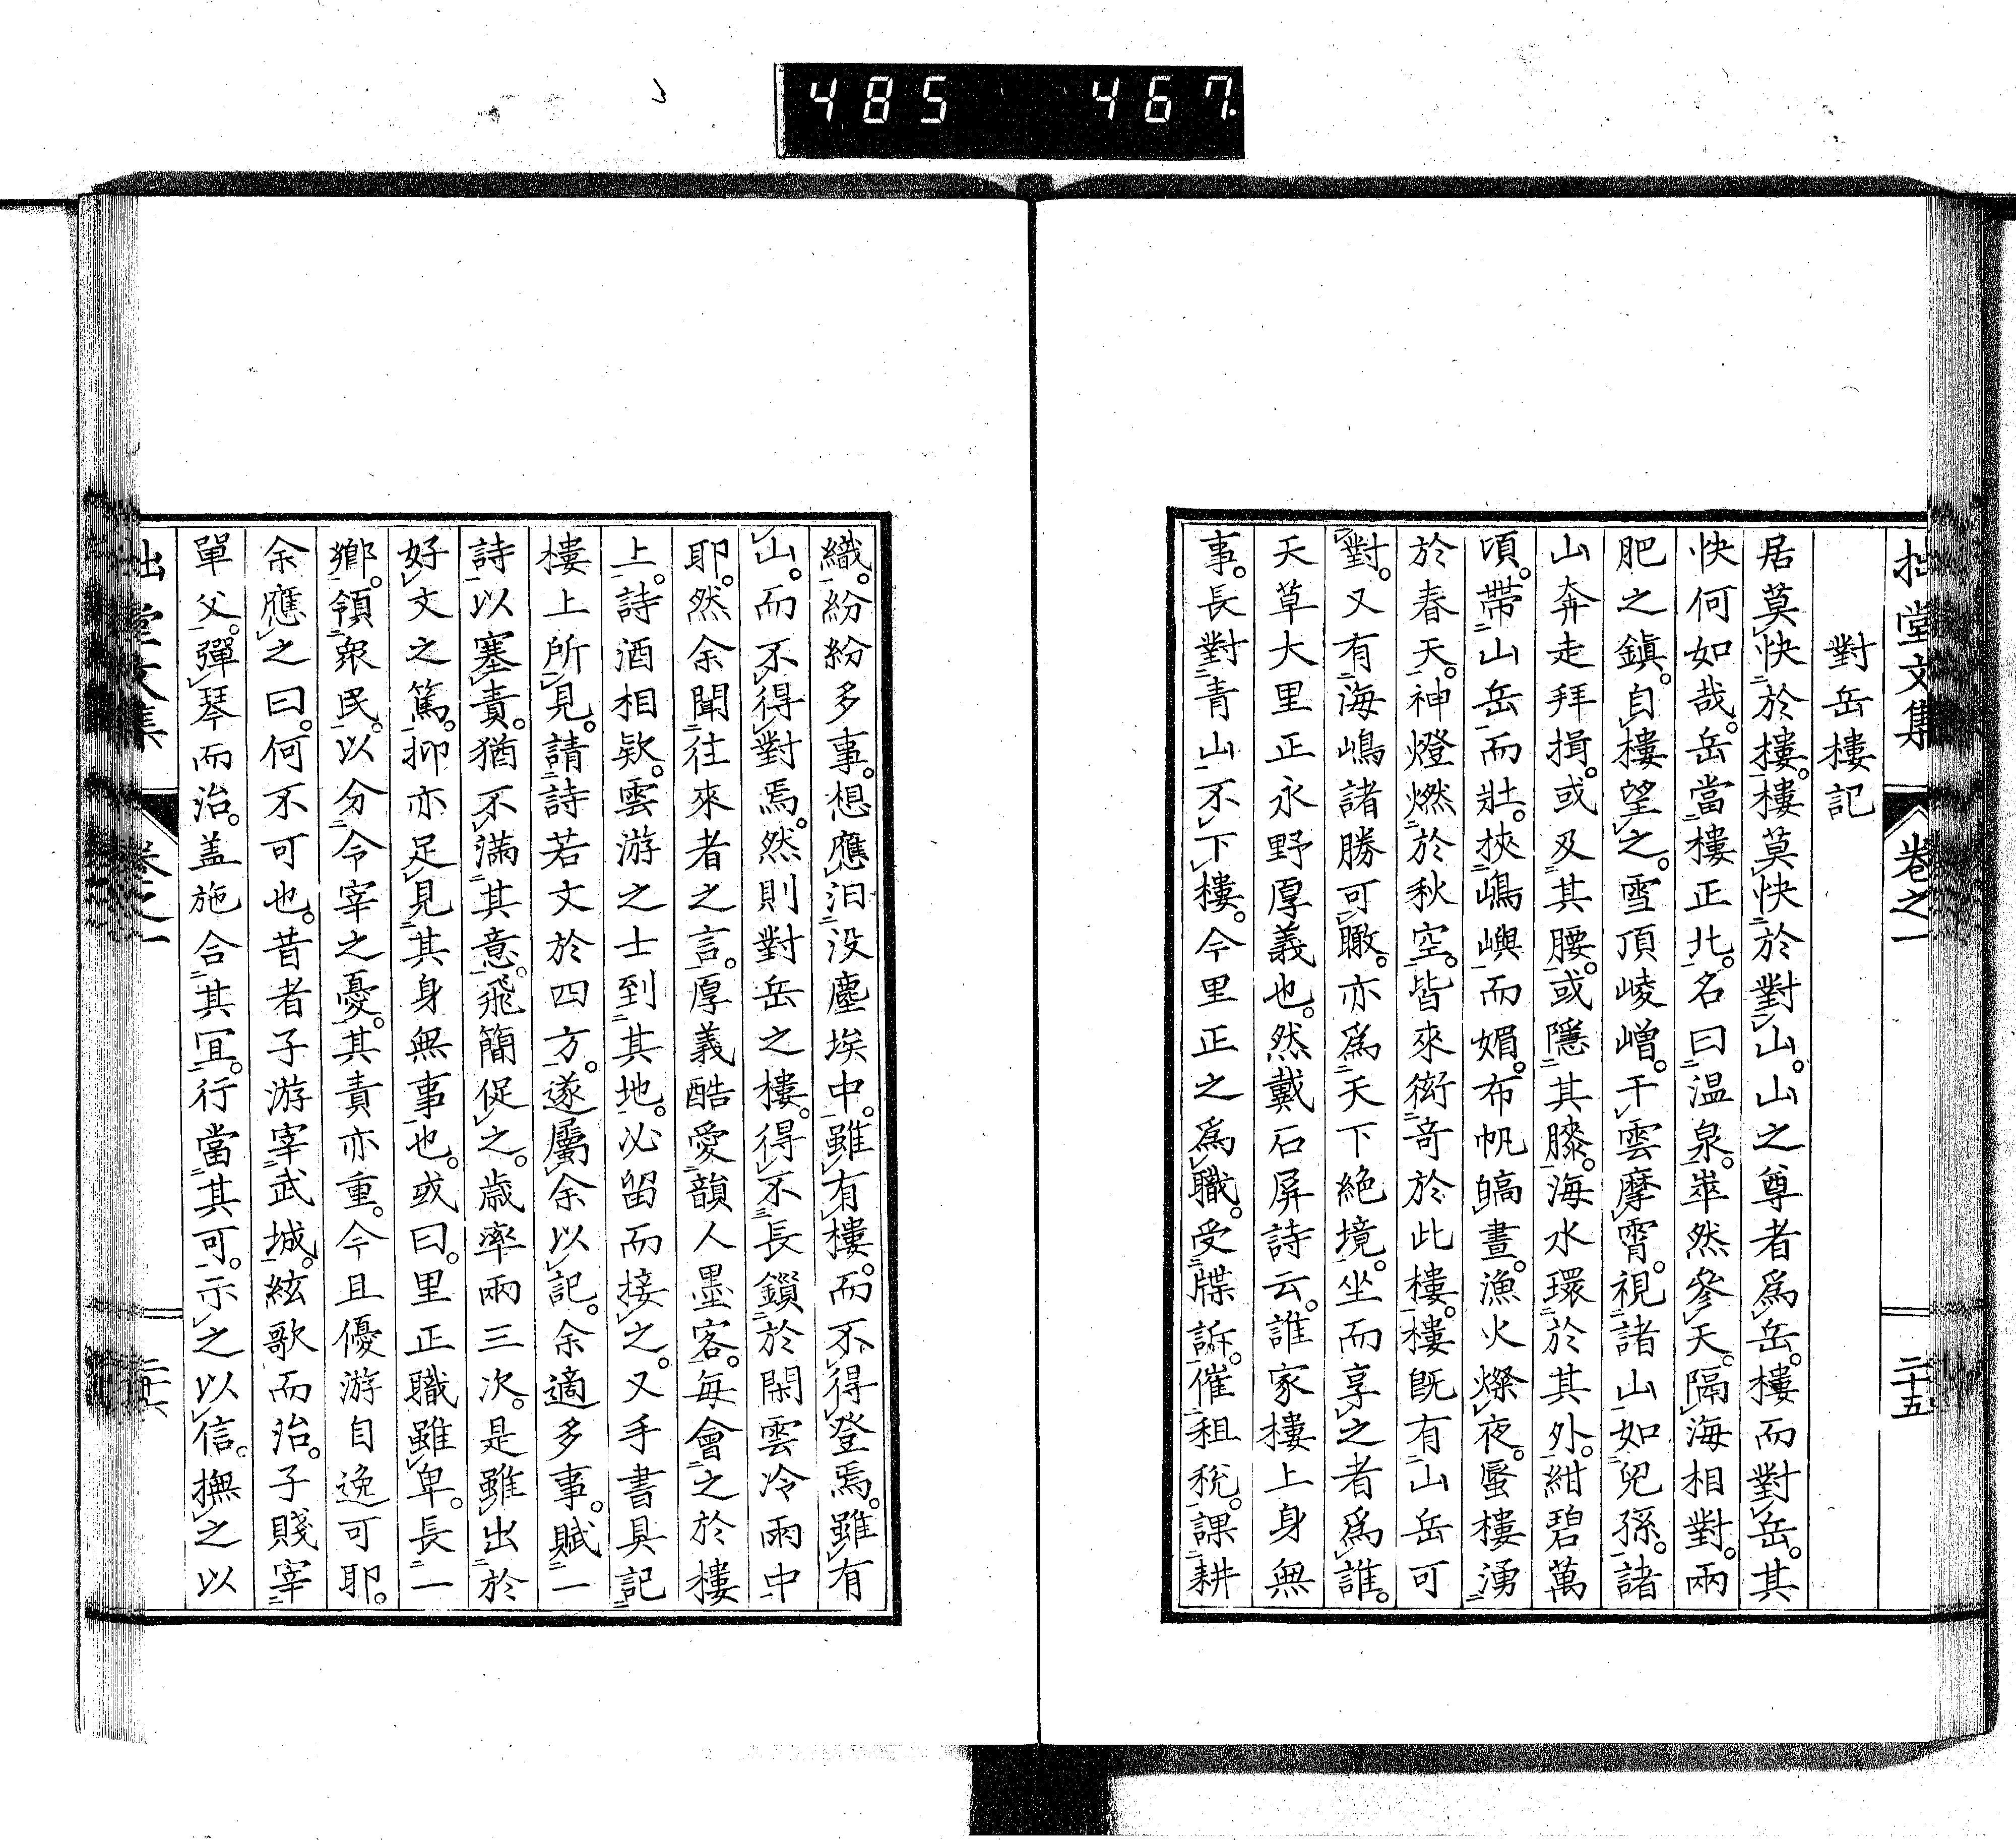 485 467
拙堂文集 卷之一 二十五
對岳樓記
居莫快於樓。樓莫快於對山。山之尊者爲岳。樓而對岳。其
快何如哉。岳當樓正北。名曰温泉。崒然參天。隔海相對。兩
肥之鎭。自樓望之。雪頂崚嶒。干雲摩霄。視諸山如兒孫。諸
山奔走拜揖。或及其腰。或隱其膝。海水環於其外。紺碧萬
頃。帶山岳而壯。挾嶋嶼而媚。布帆皜晝。漁火燦夜。蜃樓湧
於春天。神燈燃於秋空。皆來衒奇於此樓。樓旣有山岳可
對。又有海嶋諸勝可瞰。亦爲天下絶境。坐而享之者爲誰。
天草大里正永野厚義也。然戴石屏詩云。誰家樓上身無
事。長對青山不下樓。今里正之爲職。受牒訴。催租稅。課耕
織。紛紛多事。想應汨没塵埃中。雖有樓。而不得登焉。雖有
山。而不得對焉。然則對岳之樓。得不長鎖於閑雲冷雨中
耶。然余聞往來者之言。厚義酷愛韻人墨客。每會之於樓
上。詩酒相欵。雲游之士到其地。必留而接之。又手書具記
樓上所見。請詩若文於四方。遂屬余以記。余適多事。賦一
詩以塞責。猶不滿其意。飛簡促之。歳率兩三次。是雖出於
好文之篤。抑亦足見其身無事也。或曰。里正職雖卑。長一
鄉。領衆民。以分令宰之憂。其責亦重。今且優游自逸可耶。
余應之曰。何不可也。昔者子游宰武城。絃歌而治。子賤宰
單父。彈琴而治。盖施合其宜。行當其可。示之以信。撫之以
拙堂文集 卷之一 二十六